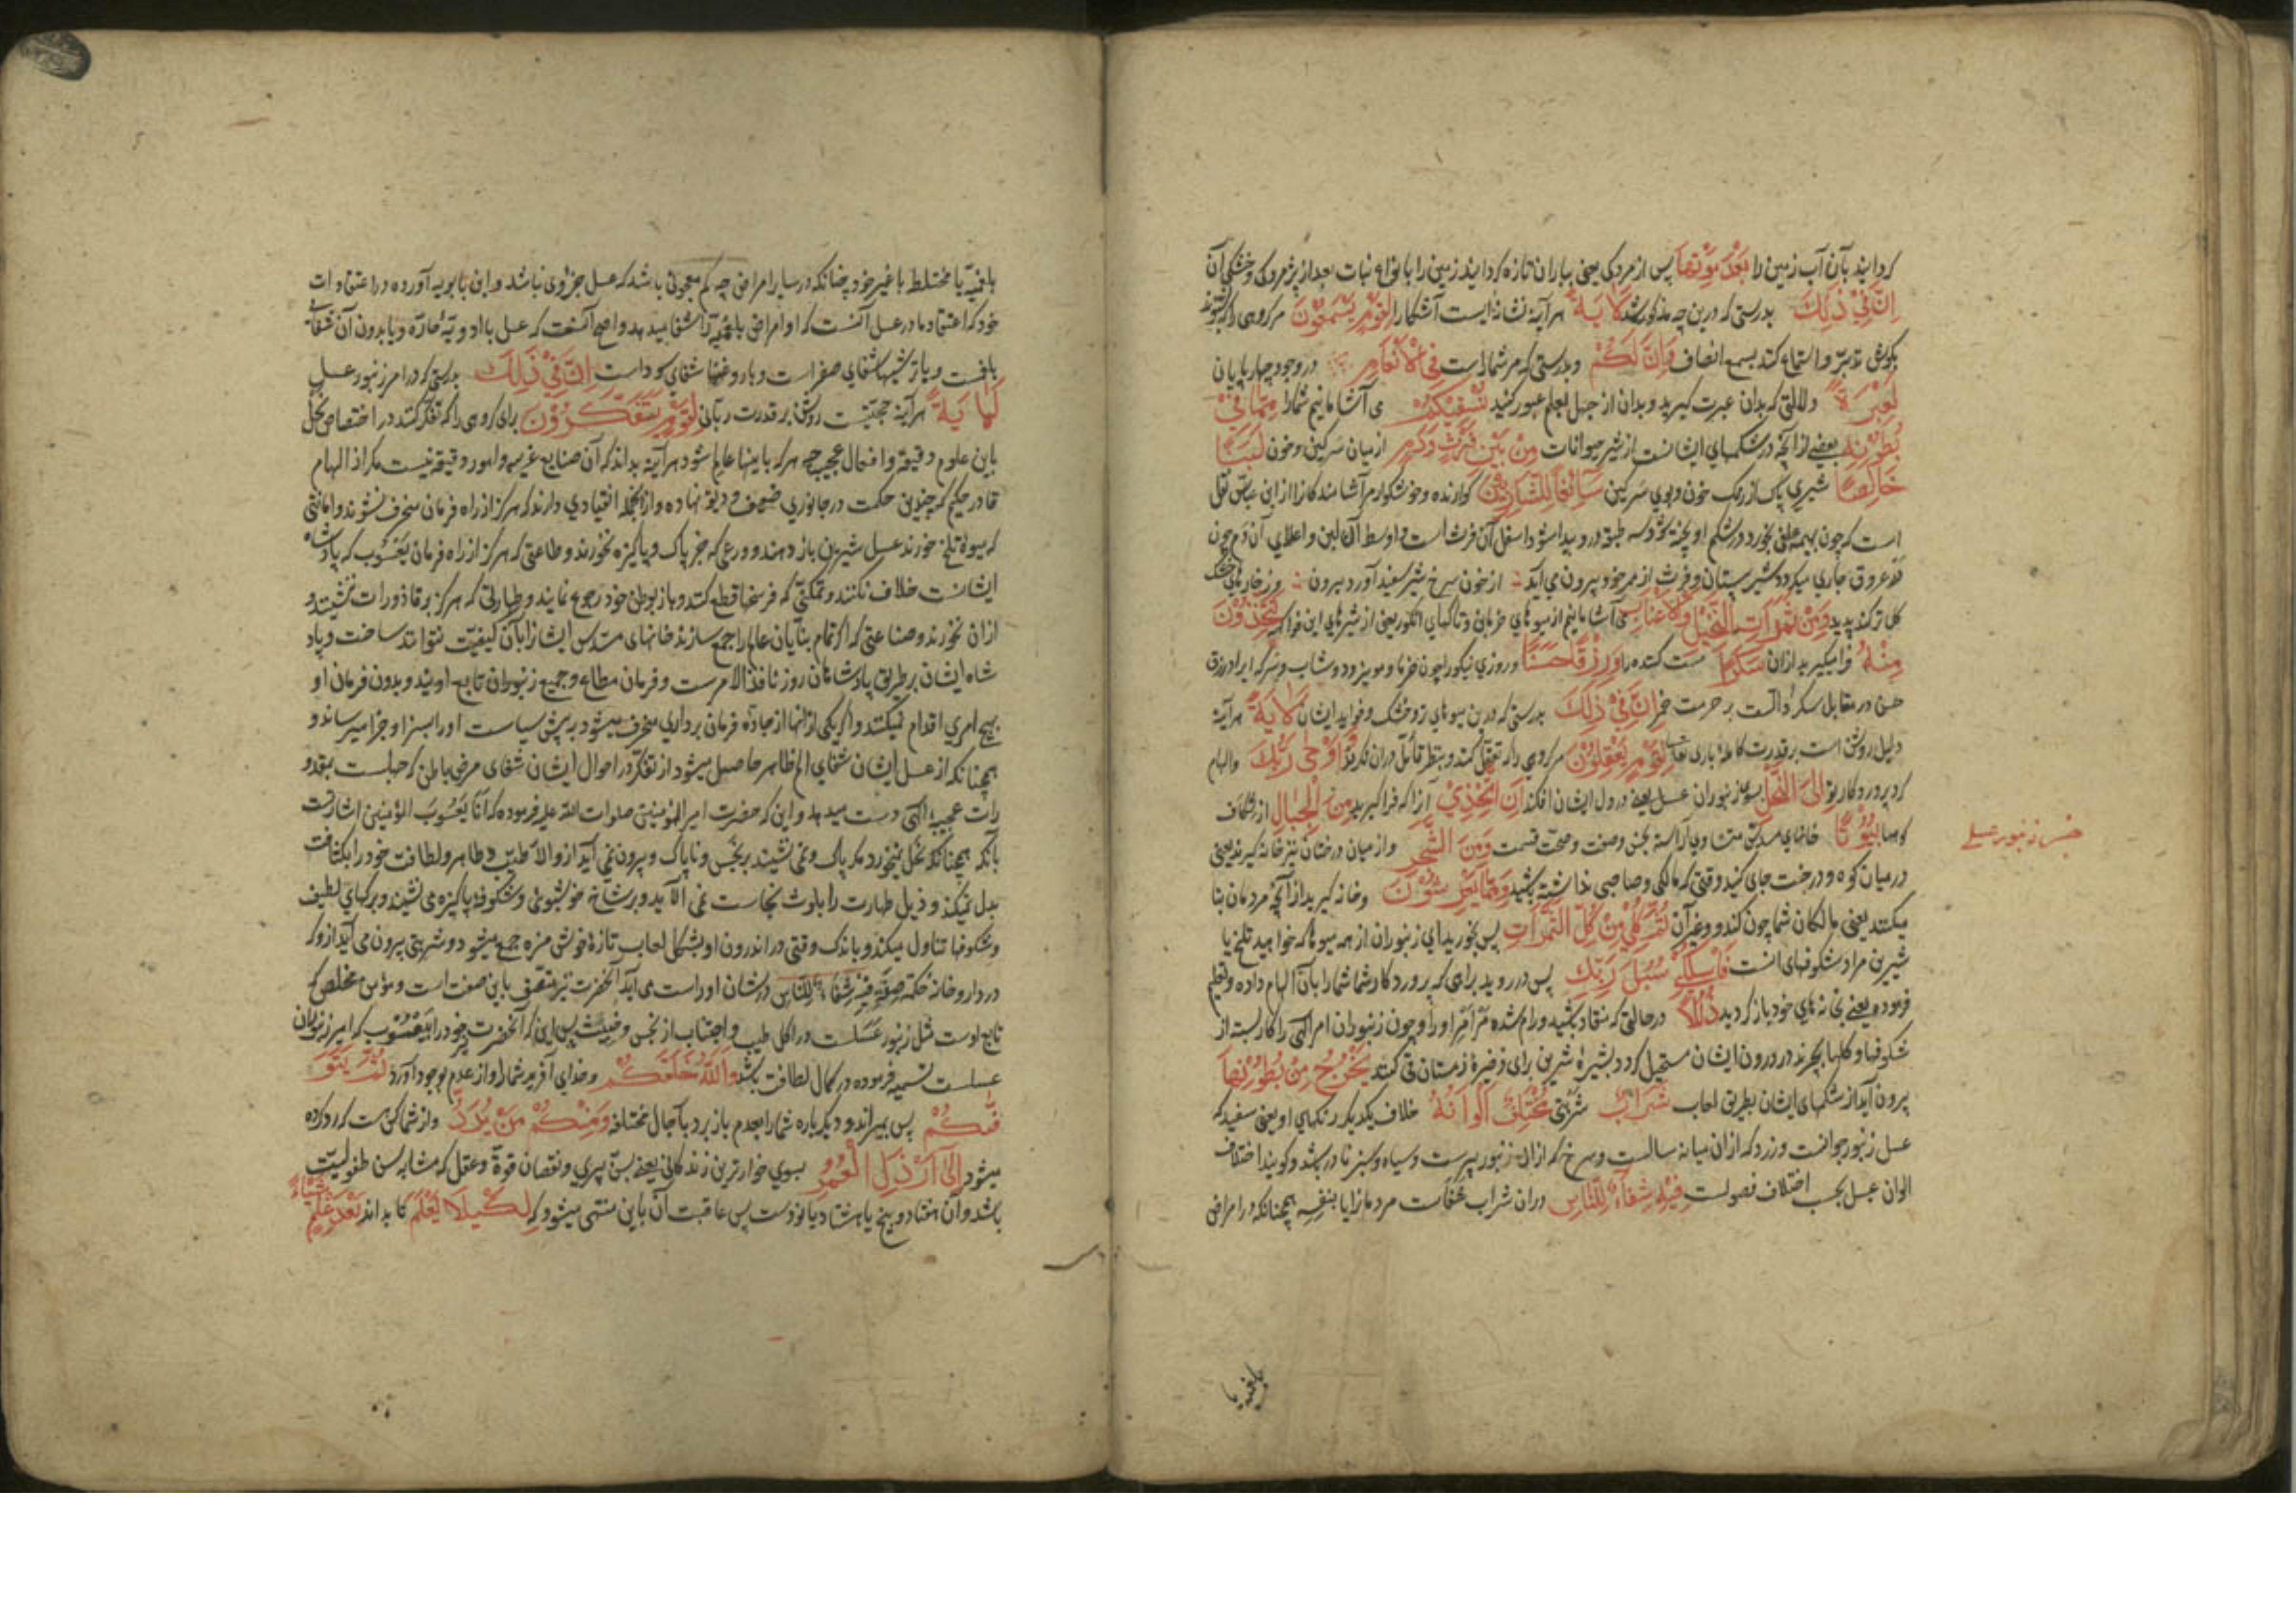 کردانید بآن آب زمین را بَعْدَ مَوْتِهَا پس از مردکی یعنی بباران تازه کردانید زمین را بانواع نبات بعد از پژمردکی و خشکی آن
اِنَّ فِيْ ذٰلِكَ بدرستی که درین چه مذکور شد لَاٰيَةً هرآینه نشانه ایست آشکارا لِقَوْمٍ يَسْمَعُوْنَ مر کروهی را که بشنوند
بکوش تدبر و استماع کنند بسمع انصاف وَاِنَّ لَكُمْ و بدرستی که مر شما راست فِي الْاَنْعَامِ در وجود چهارپایان
لَعِبْرَةً دلالتی که بدان عبرت کیرید و بدان از جهل بعلم عبور کنید نُسْقِيْكُمْ می آشامانیم شما را مِمَّا فِيْ
بُطُوْنِهٖ بعضی از آنچه در شکمهای ایشانست از شیر حیوانات مِنْ بَيْنِ فَرْثٍ وَدَمٍ از میان سرکین و خون لَبَنًا
خَالِصًا شیری پاک از رنک خون و بوی سرکین سَائِغًا لِلشَّارِبِيْنَ کوارنده و خوشکوار مر آشامندکان را از ابن عباس نقل
است که چون بهیمه علفی بخورد در شکم او پخته شود سه طبقه درو پیدا شود اسفل آن فرث است و اوسط آن لبن و اعلای آن دم خون
در عروق جاری میکردد شیر بپستان و فرث از ممر خود بیرون می آید از خون سرخ شیر سفید آورد بیرون وز خارهای خشک
کل تر کند پدید وَمِنْ ثَمَرَاتِ النَّخِيْلِ وَالْاَعْنَابِ می آشامانیم از میوهای خرمابن و تاکهای انکور یعنی از شیرهای این فواکه تَتَّخِذُوْنَ
مِنْهُ فرا میکیرید از آن سَكَرًا مست کننده را وَرِزْقًا حَسَنًا و روزی نیکو را چون خرما و مویز و دوشاب و سرکه ایراد رزق
حسن در مقابل سکر دالست بر حرمت خمر اِنَّ فِيْ ذٰلِكَ بدرستی که درین میوهای تر و خشک و فواید ایشان لَاٰيَةً هرآینه
دلیل روشن است بر قدرت کامله باری تعالی لِقَوْمٍ يَعْقِلُوْنَ مر کروهی را که تعقل کنند و بنظر تأمل در آن نکرند وَاَوْحٰى رَبُّكَ و الهام
کرد پروردکار تو اِلَى النَّحْلِ بسوی زنبوران عسل یعنی در دل ایشان افکند اَنِ اتَّخِذِيْ آنرا که فرا کیرید مِنَ الْجِبَالِ از شکاف
کوهها بُيُوْتًا خانهای مسدس متساوی آراسته بحسن وصنعت و صحت قسمت وَمِنَ الشَّجَرِ و از میان درختان نیز خانه کیرید یعنی
جنس زنبور عسلی
در میان کوه و درخت جای کنید وقتی که مالکی و صاحبی نداشته باشید وَمِمَّا يَعْرِشُوْنَ و خانه کیرید از آنچه مردمان بنا
میکنند یعنی مالکان شما چون کندو و غیر آن ثُمَّ كُلِيْ مِنْ كُلِّ الثَّمَرَاتِ پس بخورید ای زنبوران از همه میوها که خواهید تلخ یا
شیرین مراد شکوفهای آنست فَاسْلُكِيْ سُبُلَ رَبِّكِ پس در روید براهی که پروردکار شما شما را بآن الهام داده و تعلیم
فرموده یعنی بخانهای خود باز کردید ذُلُلًا در حالتی که منقاد باشید و رام شده مر امر او را و چون زنبوران امر الهی را کار بسته از
شکوفها و کلها بچرند در درون ایشان مستحیل کردد بشیرهٔ شیرین برای ذخیرهٔ زمستان قی کنند يَخْرُجُ مِنْ بُطُوْنِهَا
بیرون آید از شکمهای ایشان بطریق لعاب شَرَابٌ شربتی مُخْتَلِفٌ اَلْوَانُهٗ خلاف یکدیکر رنکهای او یعنی سفید که
عسل زنبور جوانست و زرد که از آن میانه سالست و سرخ که از آن زنبور پیرست و سیاه و سبز نادر باشد و کویند اختلاف
الوان عسل بحسب اختلاف فصولست فِيْهِ شِفَآءٌ لِلنَّاسِ در آن شراب شفاست مردمان را یا بنفسه همچنانکه در امراض
بلغمیه یا
بلغمیّه یا مختلط با غیر خود چنانکه در سایر امراض چه کم معجونی باشد که عسل جزؤ وی نباشد و ابن بابویه آورده در اعتقادات
خود که اعتقاد ما در عسل آنست که او امراض بلغمیّه را شفا میدهد و اصح آنست که عسل با ادویهٔ حارّه و یا بدون آن شفای
بلغمست و با ترشیها شفای صفراست و با روغنها شفای سوداست اِنَّ فِيْ ذٰلِكَ بدرستی که در امر زنبور عسل
لَاٰيَةً هرآینه حجتیست روشن بر قدرت ربانی لِقَوْمٍ يَتَفَكَّرُوْنَ برای کروهی را که تفکر کنند در اختصاص نحل
باین علوم دقیقه و افعال عجیبه چه هر که باینها عالم شود هرآینه بداند که آن صنایع غریبه و امور دقیقه نیست مکر از الهام
قادر حکیم که چنین حکمت در جانوری ضعیف ودیعه نهاده و از آنجمله انقیادی دارند که هرکز از راه فرمان منحرف نشوند و امانتی
که میوهٔ تلخ خورند عسل شیرین باز دهند و ورعی که جز پاک و پاکیزه نخورند و طاعتی که هرکز از راه فرمان یعسوب که پادشاه
ایشانست خلاف نکنند و تمکنی که فرسخها قطع کنند و باز بوطن خود رجوع نمایند و طهارتی که هرکز بر قاذورات ننشینند و
از آن نخورند و صناعتی که اکر تمام بنایان عالم را جمع سازند خانهای مسدس ایشانرا بآن کیفیّت نتوانند ساخت و پاد
شاه ایشان بر طریق پادشاهان روز نافذ الامرست و فرمان مطاع و جمیع زنبوران تابع اویند و بدون فرمان او
بهیچ امری اقدام نمیکنند و اکر یکی از آنها از جادهٔ فرمان برداری منحرف میشود سیاست او را بسزا و جزا میرساند و
همچنانکه از عسل ایشان شفای الم ظاهر حاصل میشود از تفکر در احوال ایشان شفای مرض باطن که جهلست بمقدو
رات عجیبه الهی دست میدهد و این که حضرت امیر المؤمنین صلوات الله علیه فرموده که اَنَا يَعْسُوبُ المؤمنین اشارتست
بآنکه همچنانکه نحل نمیخورد مکر پاک و نمی نشیند بر نجس و ناپاک و بیرون نمی آید ازو الا طیّب و طاهر و لطافت خود را بکثافت
بدل نمیکند و ذیل طهارت را بلوث نجاست نمی آلاید و بر شاخ خوشبوی و شکوفهٔ پاکیزه می نشیند و برکهای لطیف
و شکوفها تناول میکند و باندک وقتی در اندرون او بشکل لعاب تازهٔ خوش مزه جمع میشود و شربتی بیرون می آید ازو که
در داروخانه حکمت فِيْهِ شِفَآءٌ لِلنَّاسِ در شان او راست می آید آنحضرت نیز متصف باین صفت است و مؤمن مخلص که
تابع اوست مثل زنبور عسلست در اکل طیب و اجتناب از نجس و خبیث پس این که آنحضرت خود را بیعسوب که امیر زنبوران
عسلست تسمیه فرموده در کمال لطافت باشد وَاللّٰهُ خَلَقَكُمْ و خدای آفرید شما را و از عدم بوجود آورد ثُمَّ يَتَوَ
فّٰىكُمْ پس بمیراند و دیکرباره شما را بعدم باز برد بآجال مختلفه وَمِنْكُمْ مَنْ يُرَدُّ و از شما کس هست که رد کرده
میشود اِلٰى اَرْذَلِ الْعُمُرِ بسوی خوارترین زندکانی یعنی بسنّ پیری و نقصان قوة و عقل که مشابه سن طفولیّت
باشد و آن هفتاد و پنج یا هشتاد یا نودست پس عاقبت آن باین منتهی میشود که لِكَيْلَا يَعْلَمَ تا نداند بَعْدَ عِلْمٍ شَيْئًا